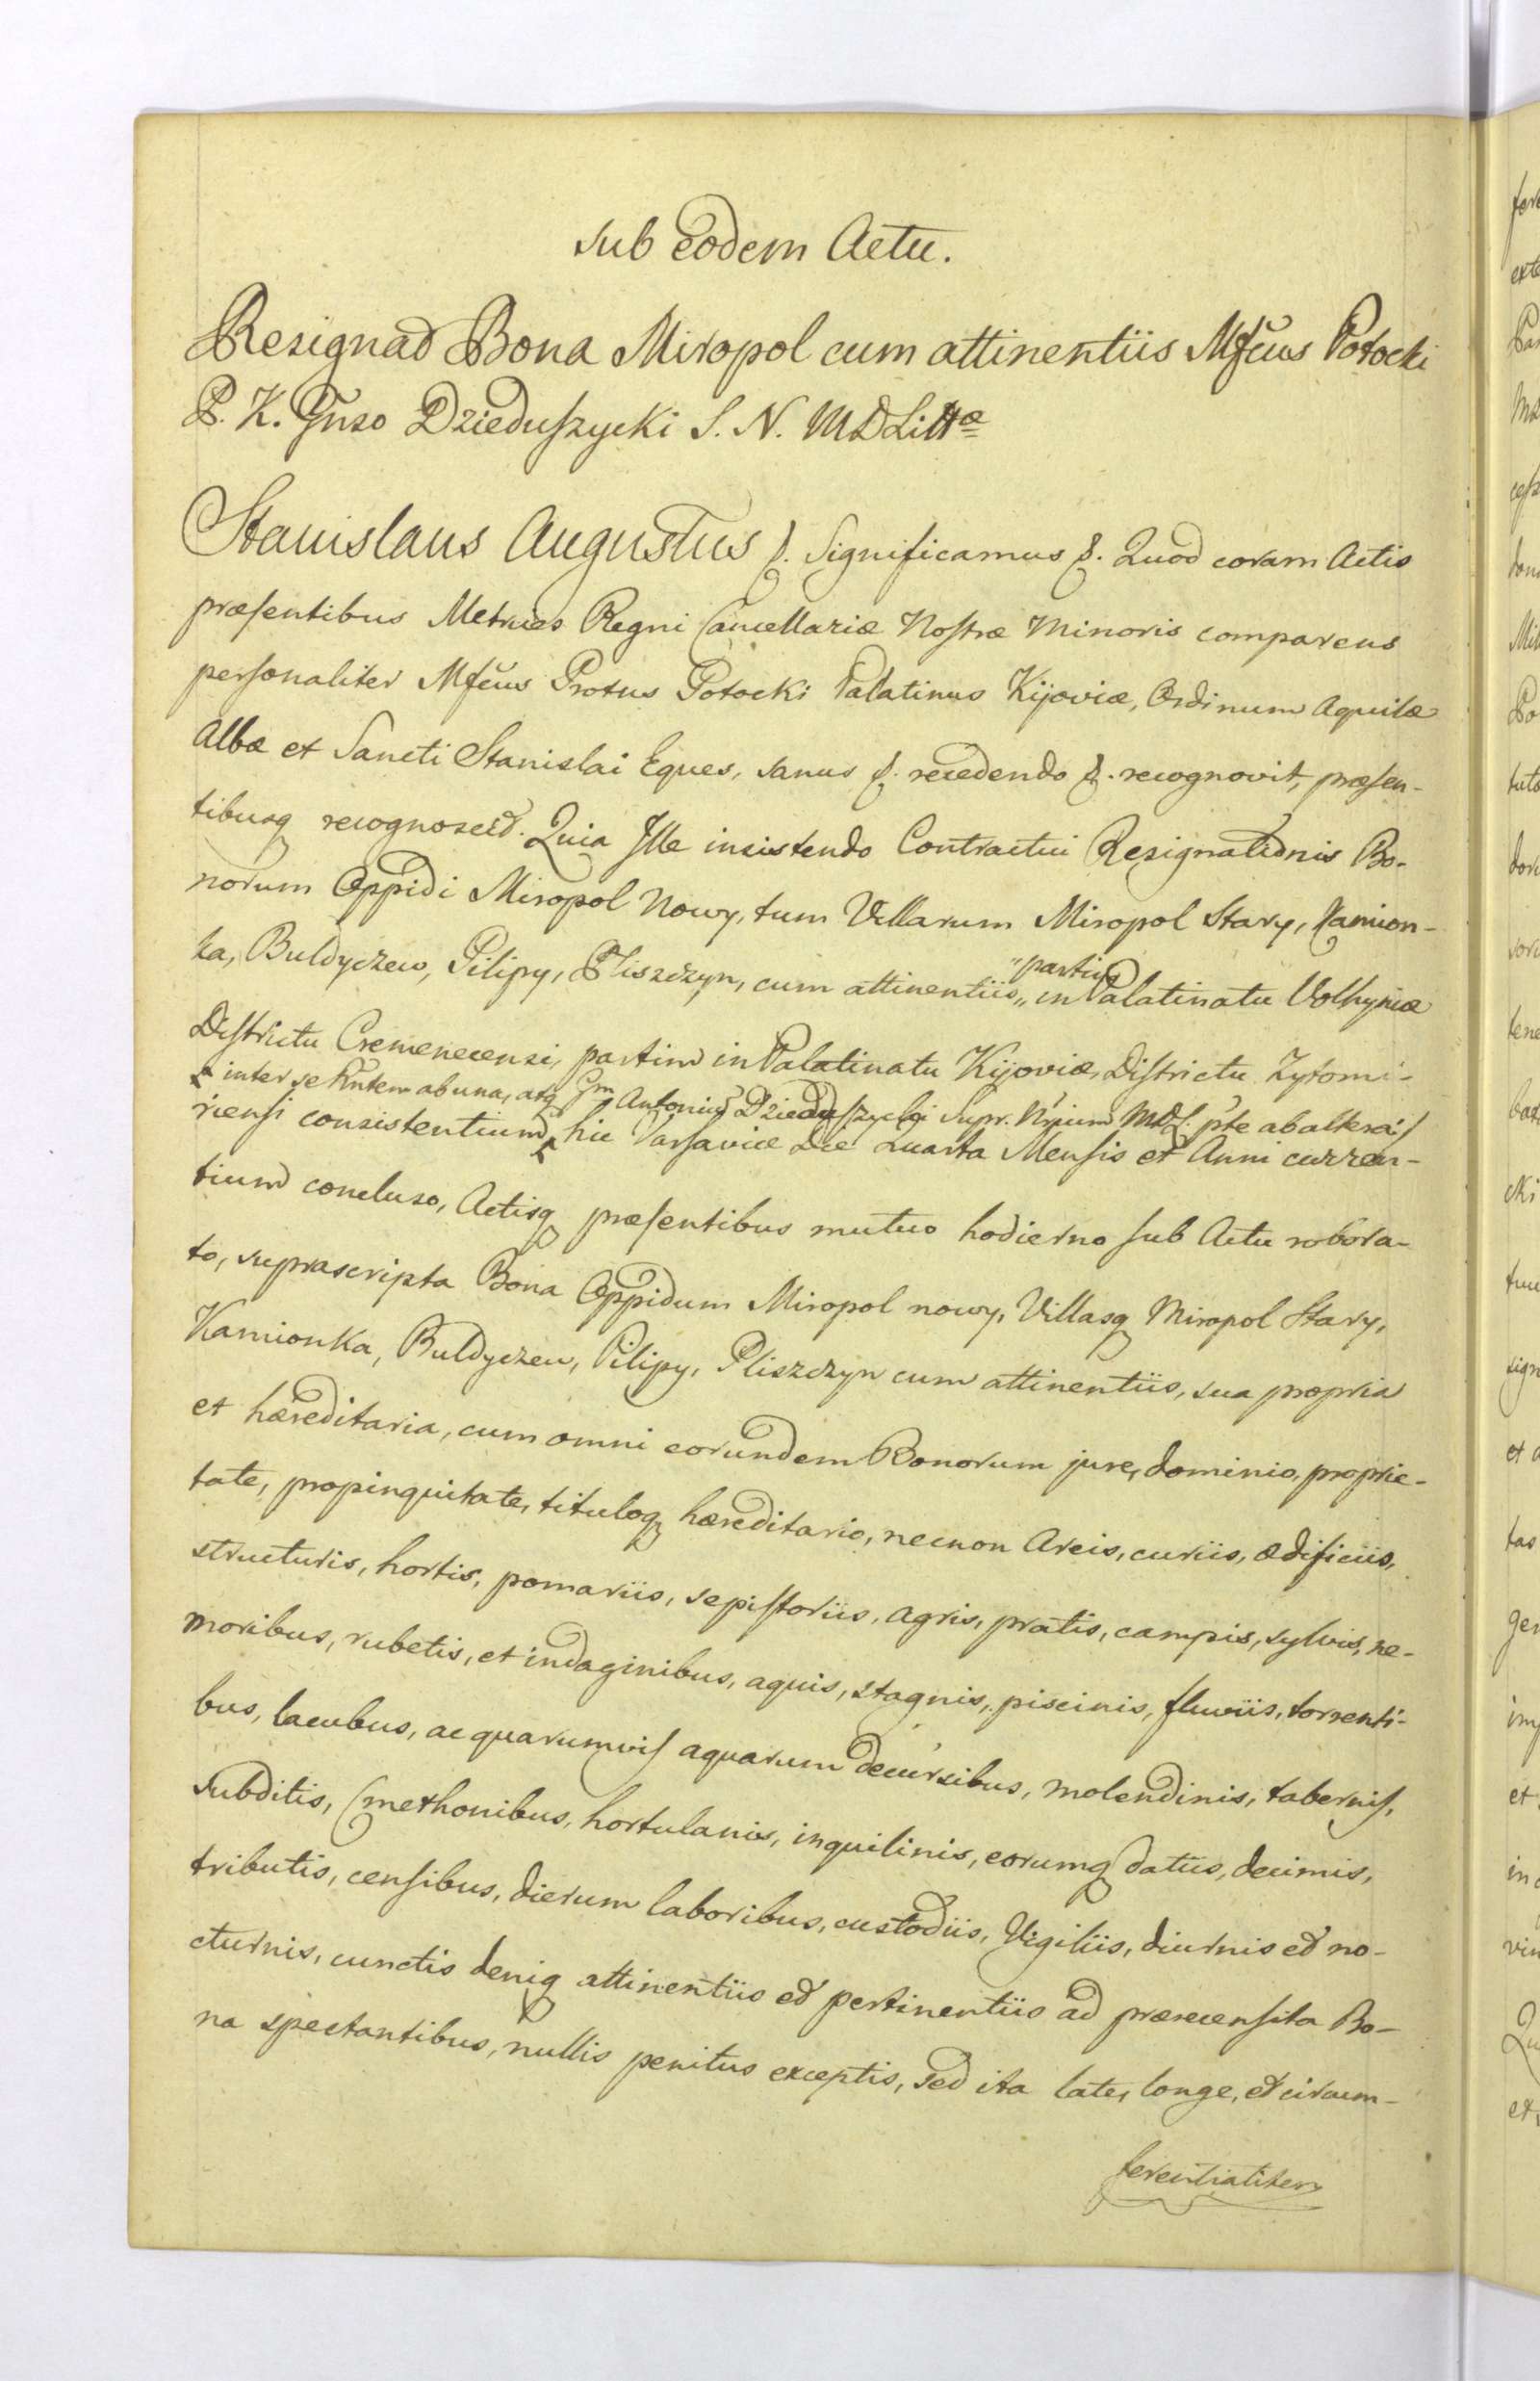 sub eodem Actu.
Resignad Bona Miropol cum attinentiis Mfcus Potocki
P. K. Gnso Dzieduszycki S. N. MDLittæ
Stanislaus Augustus &. Significamus &. Quod coram Actis
præsentibus Metrices Regni Cancellariæ Nostræ Minoris comparens
personaliter Mfcus Protus Potocki Palatinus Kijoviæ, Ordinum Aquilæ
Albæ et Sancti Stanislai Eques, sanus &. recedendo &. recognovit, præsen-
tibusq recognoscid. Quia Ille insistendo Contractui Resignationis Bo-
norum Oppidi Miropol Nowy, tum Villarum Miropol Stary, Kamion-
ka, Buldyczew, Pilipy, Pliszczyn, cum attinentiis, „partim" in Palatinatu Volhyniæ
Districtu Cremenecensi, partim in Palatinatu Kijoviæ, Districtu Zytomi-
inter se ab una, atq Gm Antonium Dzieduszycki Supr. Nrium MDL. pte ab altera
riensi consistentium, hic Varsaviæ Die Quarta Mensis et Anni curren-
tium concluso, Actisq præsentibus mutuo hodierno sub Actu robora-
to, suprascripta Bona Oppidum Miropol nowy, Villasq Miropol Stary,
Kamionka, Buldyczew, Pilipy, Pliszczyn cum attinentiis, sua propria
et hæreditaria, cum omni eorundem Bonorum jure, dominio, proprie-
tate, propinquitate, tituloq hæreditario, necnon Arcis, curiis, ædificiis,
structuris, hortis, pomariis, sepistoriis, agris, pratis, campis, sylvis, ne-
moribus, rubetis, et indaginibus, aquis, stagnis, piscinis, fluviis, torrenti-
bus, lacubus, ac quarumvis aquarum decursibus, molendinis, tabernis,
subditis, Cmethonibus, hortulanis, inquilinis, eorumq datiis, decimis,
tributis, censibus, dierum laboribus, custodiis, Vigiliis, diurnis ed no-
cturnis, cunctis deniq attinentiis ed pertinentiis ad præsecensita Bo-
na spectantibus, nullis penitus exceptis, sed ita late, longe, ed circum-
ferentialiter